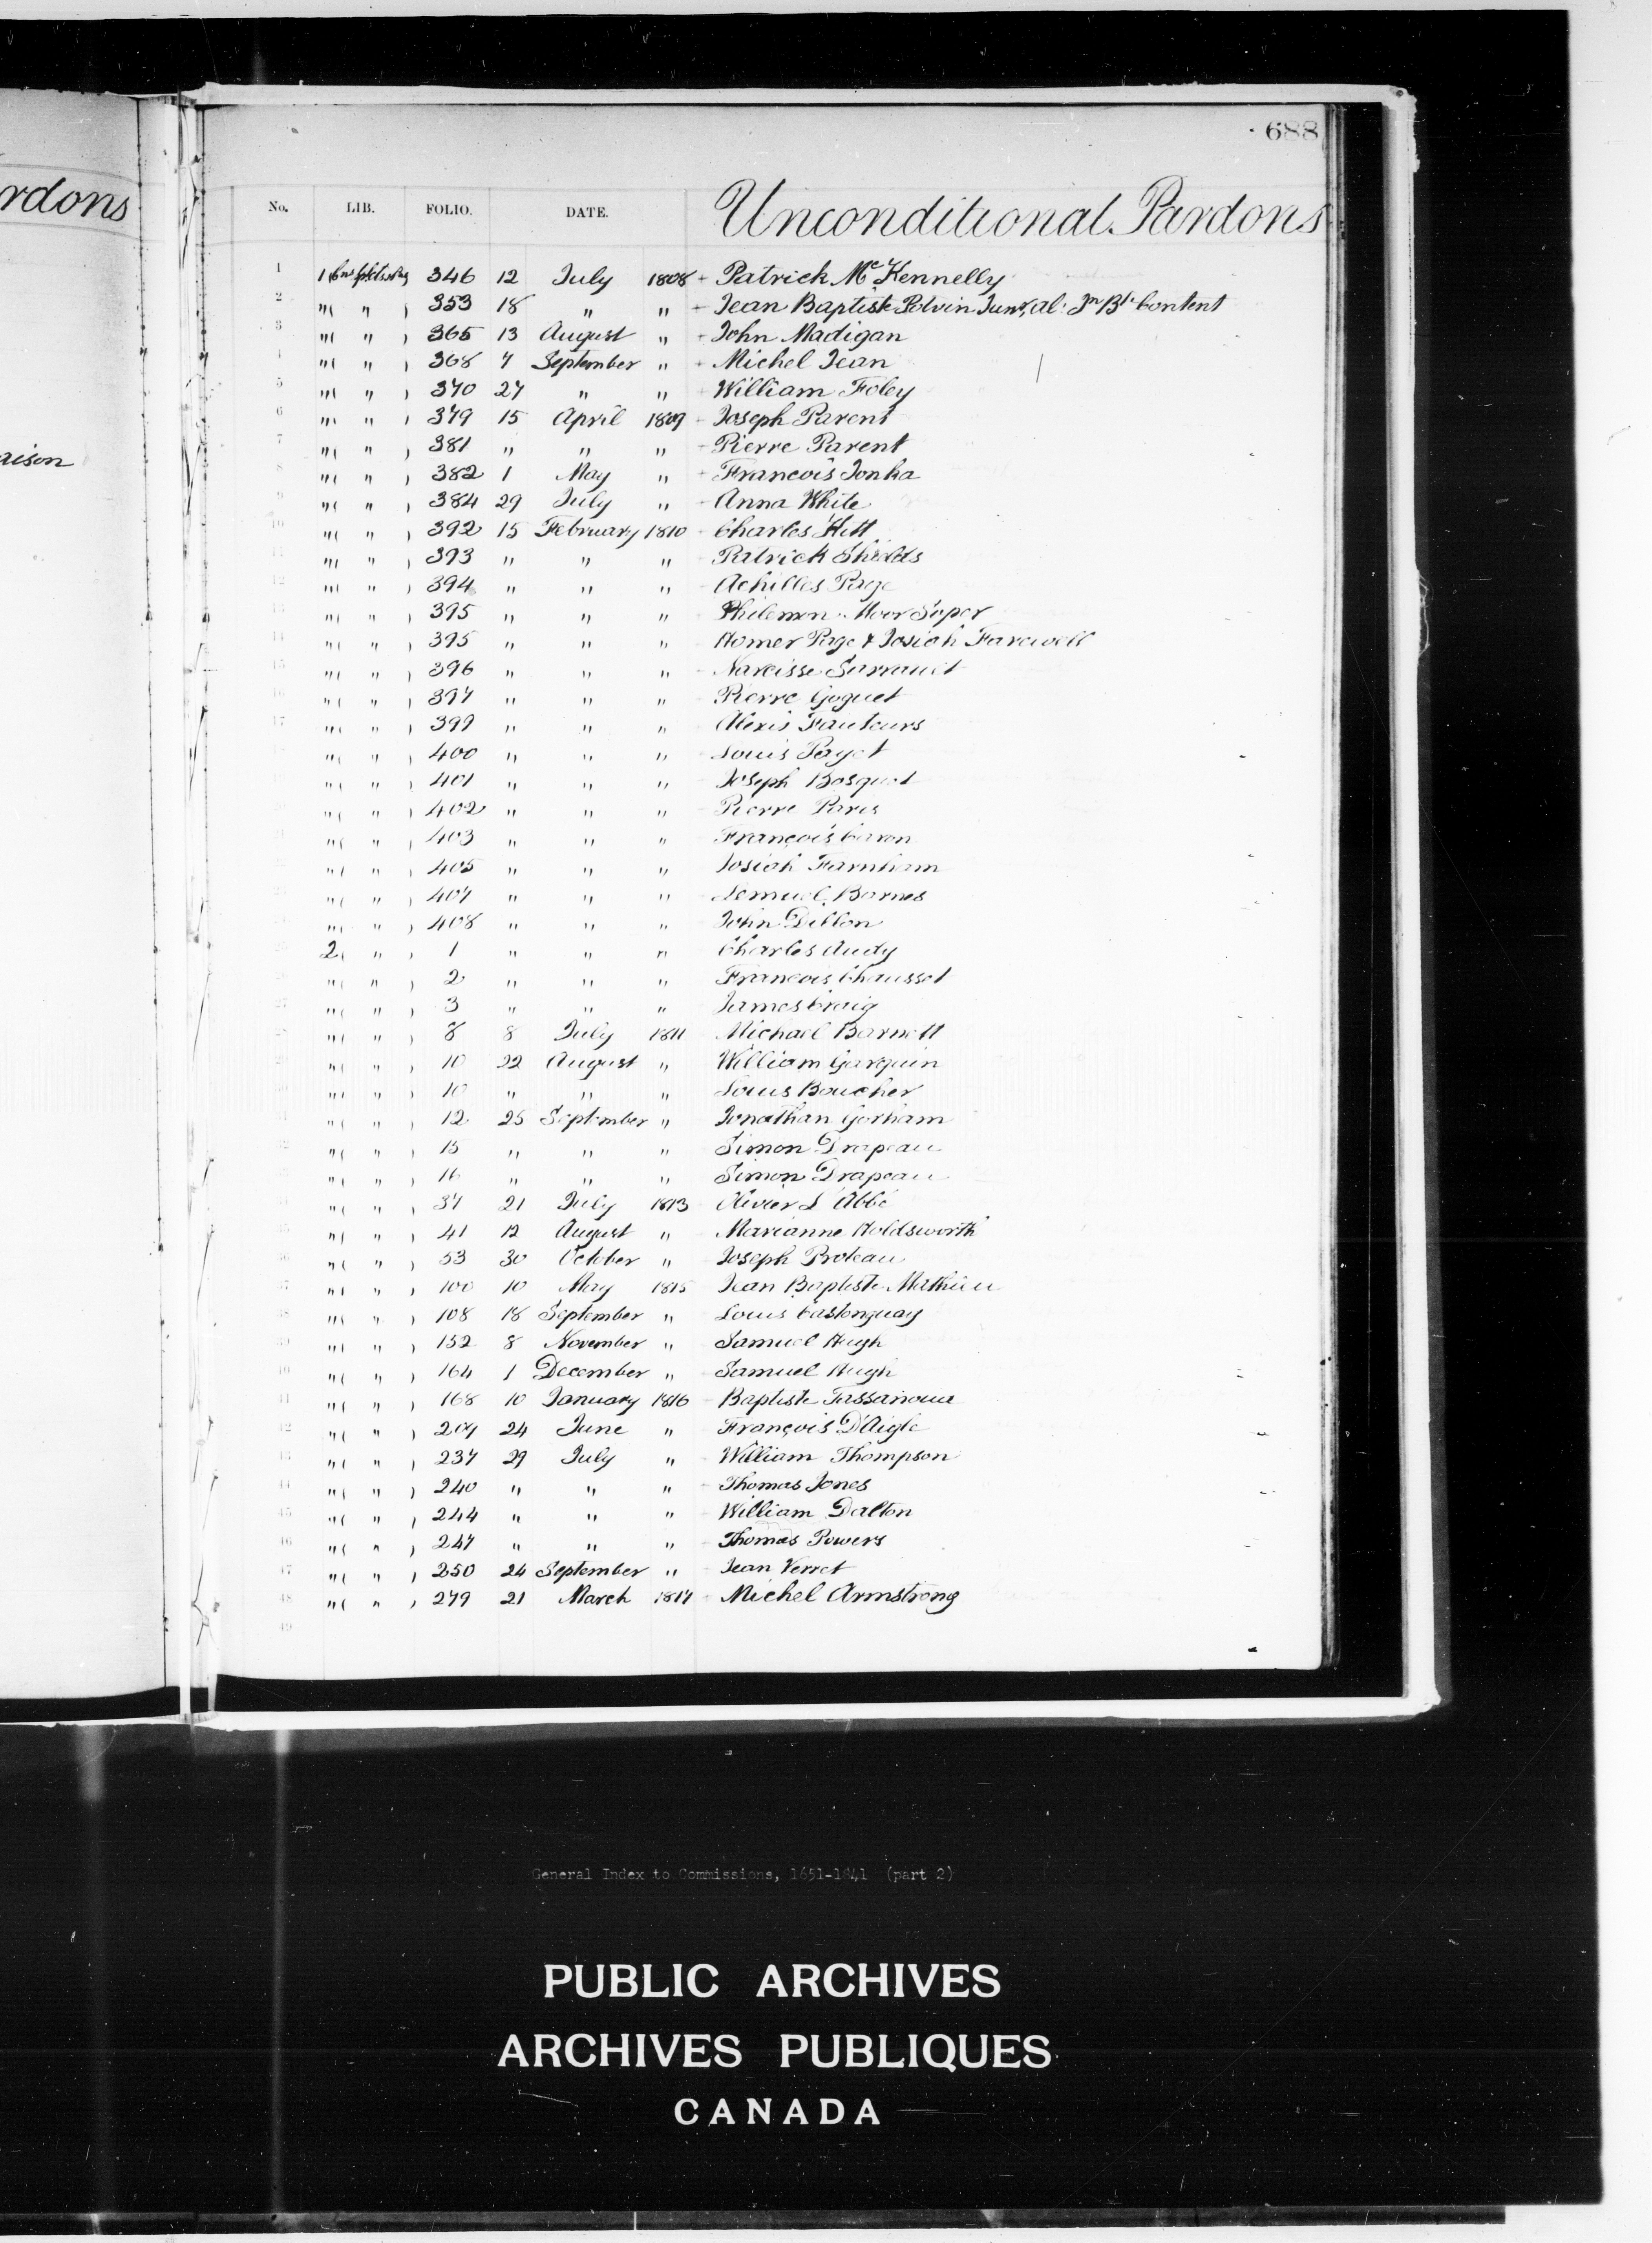 688
rdons
aison
No. LIB. FOLIO. DATE. Unconditional Pardons
1 1 346 12 July 1808 - Patrick McKennelly
2 " ( " ) 353 18 " " - Jean Baptiste Potvin Junr, al: Jn Bte Content
3 " ( " ) 365 13 August " - John Madigan
4 " ( " ) 368 7 September " - Michel Jean
5 " ( " ) 370 27 " " - William Foley
6 " ( " ) 379 15 April 1809 - Joseph Parent
7 " ( " ) 381 " " " - Pierre Parent
8 " ( " ) 382 1 May " - Francois Jonka
9 " ( " ) 384 29 July " - Anna White
10 " ( " ) 392 15 February 1810 - Charles Hitt
11 " ( " ) 393 " " " - Patrick Shields
12 " ( " ) 394 " " " - Achilles Page
13 " ( " ) 395 " " " - Philemon Moor Soper
14 " ( " ) 395 " " " - Homer Page & Josiah Farewell
15 " ( " ) 396 " " " - Narcisse
16 " ( " ) 397 " " " - Pierre Goguet
17 " ( " ) 399 " " " - Alexis Fauteurs
18 " ( " ) 400 " " " - Louis Payet
19 " ( " ) 401 " " " - Joseph Bosquet
20 " ( " ) 402 " " " - Pierre Paris
21 " ( " ) 403 " " " - François Caron
22 " ( " ) 405 " " " - Josiah Farnham
23 " ( " ) 407 " " " - Lemuel Barnes
24 " ( " ) 408 " " " - John Dillon
25 2 ( " ) 1 " " " - Charles Audy
26 " ( " ) 2 " " " - Francois Chausset
27 " ( " ) 3 " " " - James Craig
28 " ( " ) 8 8 July 1811 - Michael Barnett
29 " ( " ) 10 22 August " - William Garquin
30 " ( " ) 10 " " " - Louis Boucher
31 " ( " ) 12 25 September " - Jonathan Gorham
32 " ( " ) 15 " " " - Simon Drapeau
33 " ( " ) 16 " " " - Simon Drapeau
34 " ( " ) 37 21 July 1813 - Olivier L'Abbé
35 " ( " ) 41 12 August " - Marianne Holdsworth
36 " ( " ) 53 30 October " - Joseph Proteau
37 " ( " ) 100 10 May 1815 - Jean Baptiste Mathieu
38 " ( " ) 108 18 September " - Louis Castonguay
39 " ( " ) 152 8 November " - Samuel Hugh
40 " ( " ) 164 1 December " - Samuel Hugh
41 " ( " ) 168 10 January 1816 - Baptiste
42 " ( " ) 209 24 June " - François D'Aigle
43 " ( " ) 237 29 July " - William Thompson
44 " ( " ) 240 " " " - Thomas Jones
45 " ( " ) 244 " " " - William Dalton
46 " ( " ) 247 " " " - Thomas Powers
47 " ( " ) 250 24 September " - Jean Verret
48 " ( " ) 279 21 March 1817 - Michel Armstrong
49
General Index to Commissions, 1651-1841 (part 2)
PUBLIC ARCHIVES
ARCHIVES PUBLIQUES
CANADA